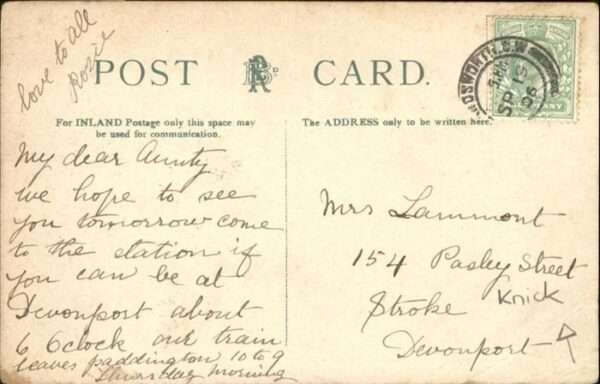 love to all
Rosie
POST CARD.
For INLAND Postage only this space may
be used for communication.
The ADDRESS only to be written here.
WANDSWORTH.S.W
SP 13
06
My dear Aunty
we hope to see
you tomorrow come
to the station if
you can be at
Devonport about
6 Oclock our train
leaves paddington 10 to 9
Thursday morning
Mrs Lammont
154 Pasley Street
Knick
Stroke
Devonport